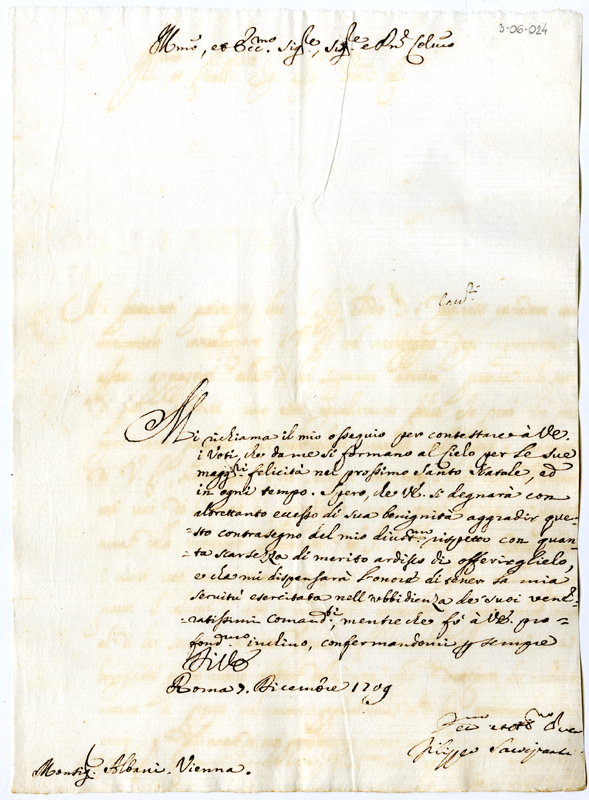 3-06-024
Illmo, et Ecc.mo Sig.re, Sig.re e Pne Colmo
Mi richiama il mio ossequio per contestare à VE.
i Voti, che da me si formano al Cielo per le sue
magg.ri felicità nel prossimo Santo Natale, ed
in ogni tempo. Spero, che VE. si degnarà con
altrettanto eccesso di sua benignità aggradir que-
-sto contrasegno del mio rispetto con quan-
-ta scarsezza di merito ardisco di offerirglielo,
e che mi dispensarà l'onore di tener la mia
servitù esercitata nell'ubbidienza de suoi vene-
-ratissimi Comand.ti, mentre che fò à VE. pro-
fond.mo inclino, confermandomi sempre
Di VE
Roma 7. Dicembre 1709
Filippo
Monsig.r Albani. Vienna.